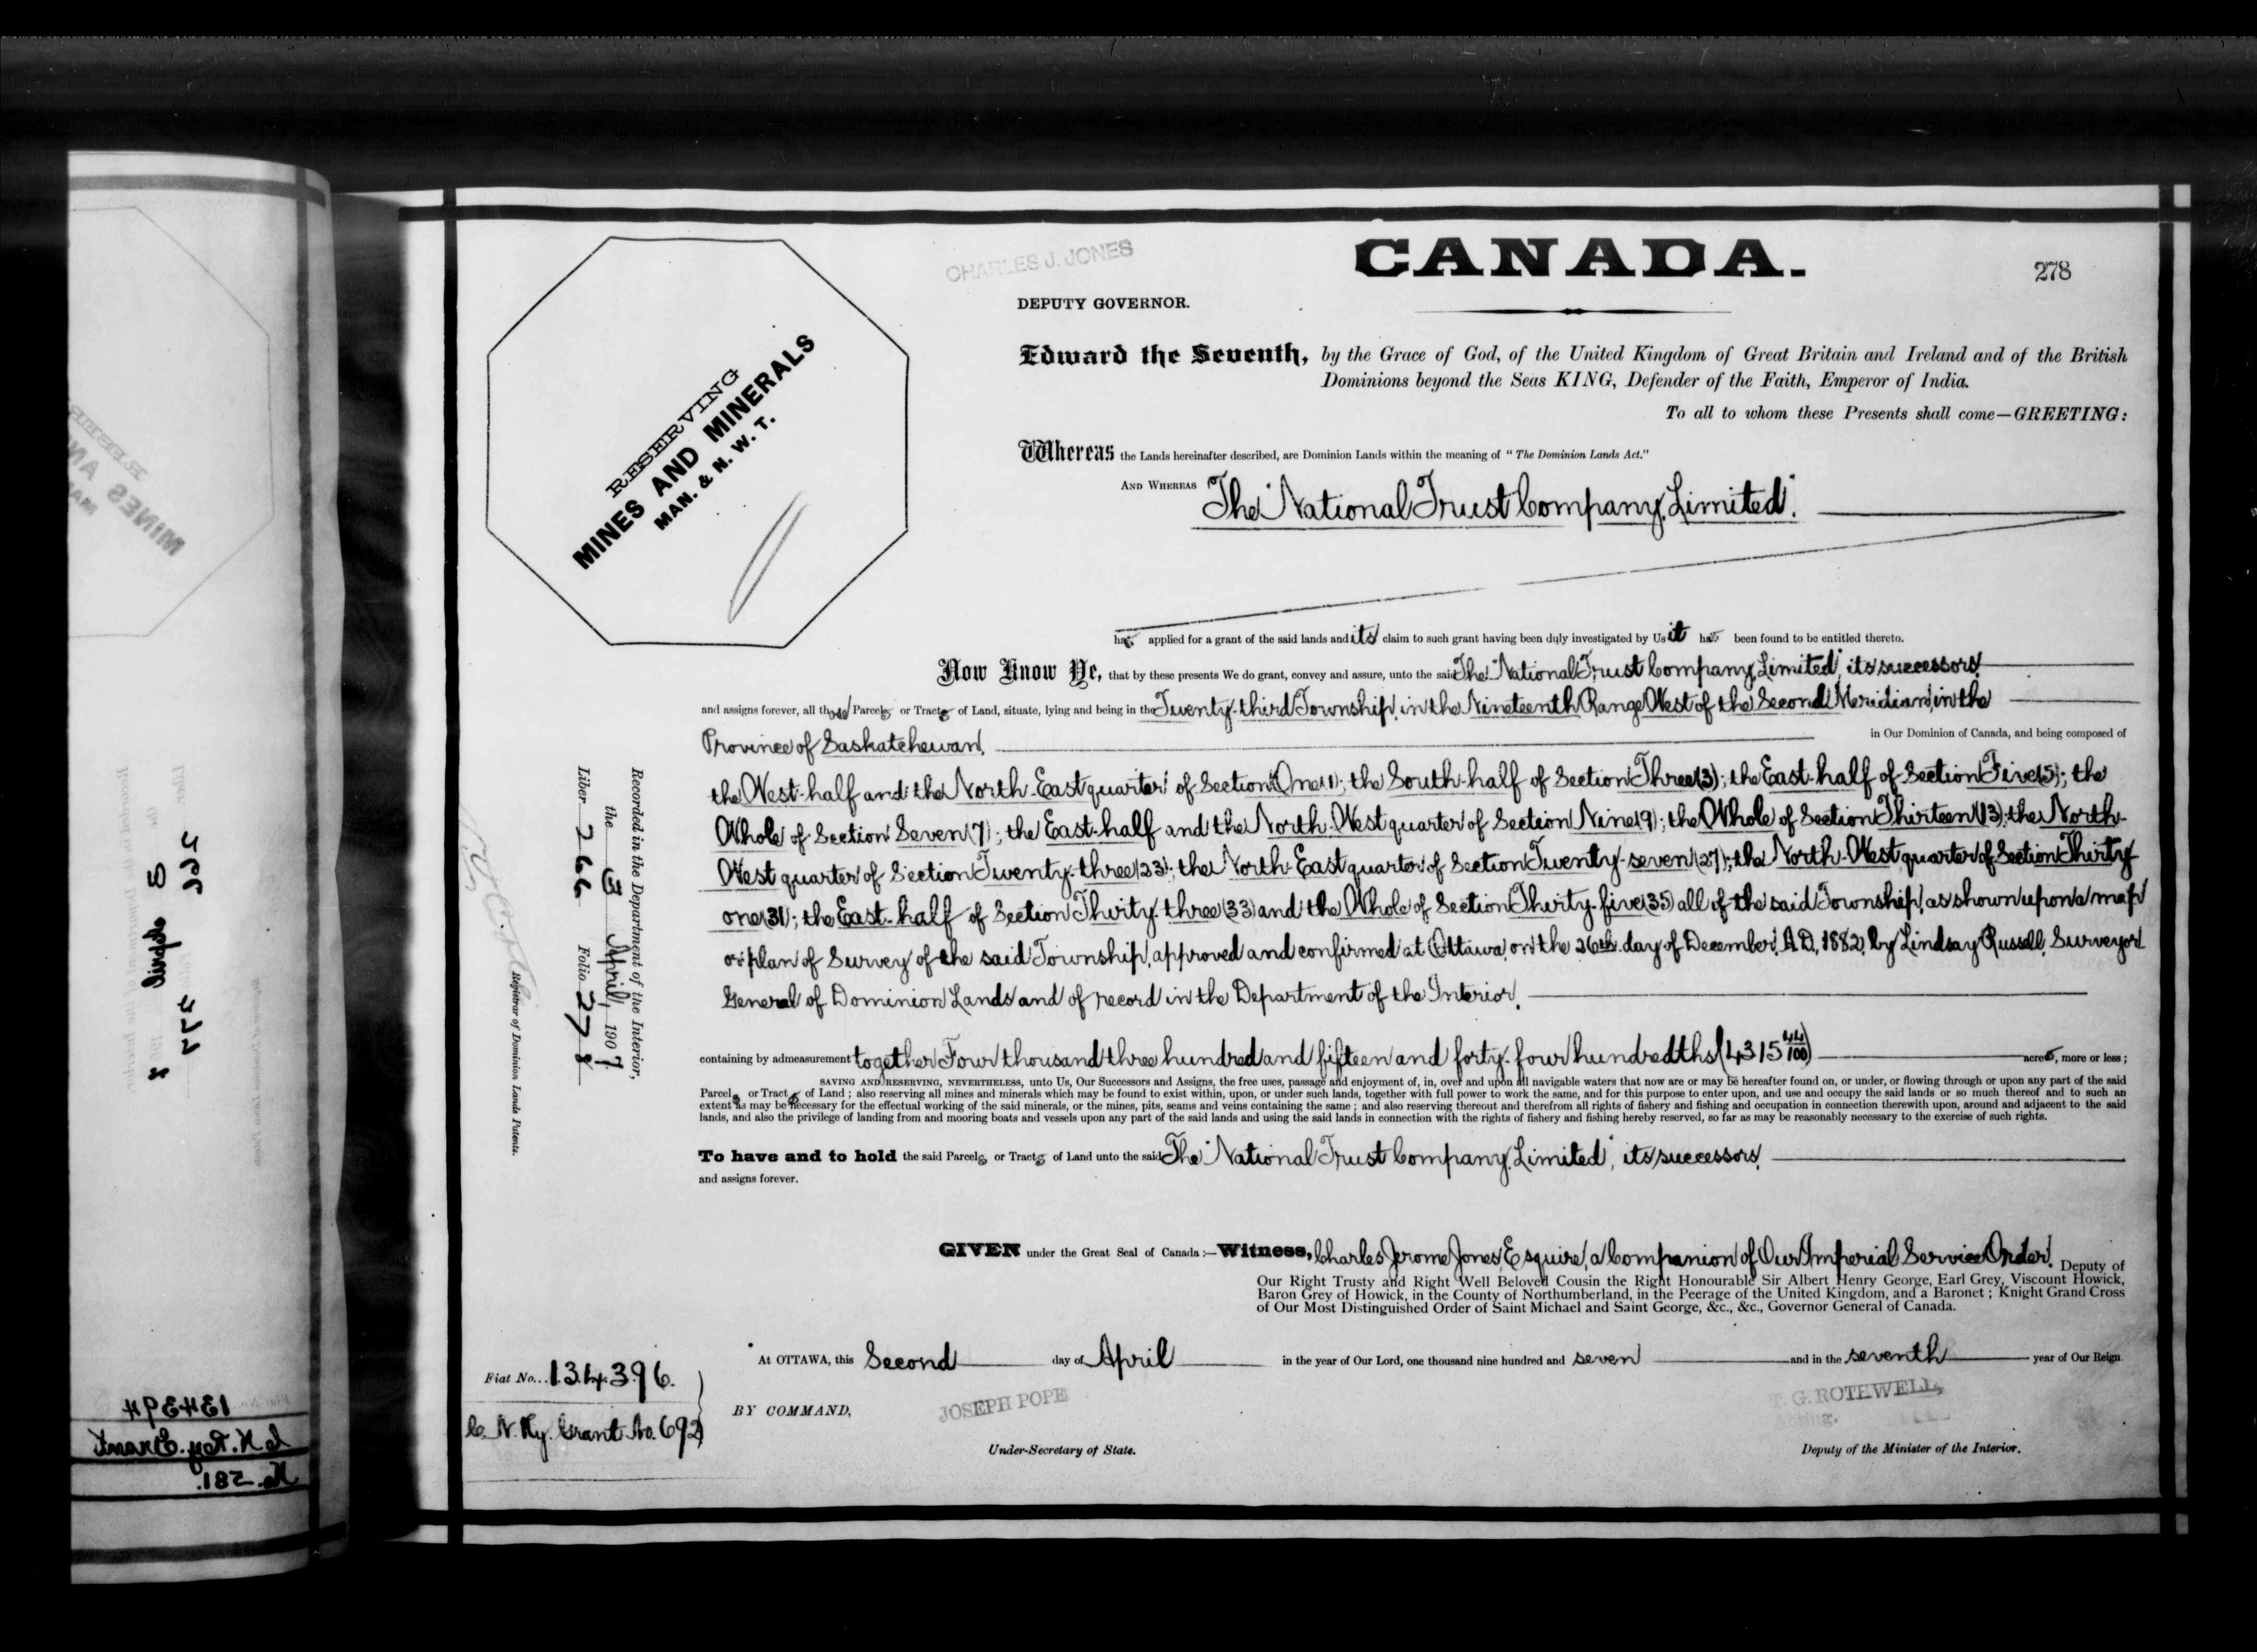 CHARLES J. JONES
CANADA.
278
DEPUTY GOVERNOR.
RESERVING
MINES AND MINERALS
MAN. & N. W. T.
Edward the Seventh, by the Grace of God, of the United Kingdom of Great Britain and Ireland and of the British
Dominions beyond the Seas KING, Defender of the Faith, Emperor of India.
To all to whom these Presents shall come—GREETING:
Whereas the Lands hereinafter described, are Dominion Lands within the meaning of "The Dominion Lands Act."
AND WHEREAS "The National Trust Company, Limited".
has applied for a grant of the said lands and its claim to such grant having been duly investigated by Us it has been found to be entitled thereto.
Now Know Ye, that by these presents We do grant, convey and assure, unto the said "The National Trust Company, Limited", its successors
and assigns forever, all those Parcels or Tracts of Land, situate, lying and being in the Twenty-third Township, in the Nineteenth Range West of the Second Meridian, in the
Province of Saskatchewan, in Our Dominion of Canada, and being composed of
the West-half and the North-East quarter of Section One (1); the South-half of Section Three (3); the East-half of Section Five (5); the
Whole of Section Seven (7); the East-half and the North-West quarter of Section Nine (9); the Whole of Section Thirteen (13); the North-
West quarter of Section Twenty-three (23); the North-East quarter of Section Twenty-seven (27); the North-West quarter of Section Thirty
one (31); the East-half of Section Thirty-three (33) and the Whole of Section Thirty-five (35) all of the said Township, as shown upon a map
or plan of Survey of the said Township, approved and confirmed at Ottawa, on the 26th day of December, A.D. 1882, by Lindsay Russell, Surveyor
General of Dominion Lands and of record in the Department of the Interior.
containing by admeasurement together Four thousand three hundred and fifteen and forty-four hundredths (4315 44/100) acres, more or less;
SAVING AND RESERVING, NEVERTHELESS, unto Us, Our Successors and Assigns, the free uses, passage and enjoyment of, in, over and upon all navigable waters that now are or may be hereafter found on, or under, or flowing through or upon any part of the said
Parcels or Tracts of Land; also reserving all mines and minerals which may be found to exist within, upon, or under such lands, together with full power to work the same, and for this purpose to enter upon, and use and occupy the said lands or so much thereof and to such an
extent as may be necessary for the effectual working of the said minerals, or the mines, pits, seams and veins containing the same; and also reserving thereout and therefrom all rights of fishery and fishing and occupation in connection therewith upon, around and adjacent to the said
lands, and also the privilege of landing from and mooring boats and vessels upon any part of the said lands and using the said lands in connection with the rights of fishery and fishing hereby reserved, so far as may be reasonably necessary to the exercise of such rights.
To have and to hold the said Parcels or Tracts of Land unto the said "The National Trust Company, Limited", its successors
and assigns forever.
GIVEN under the Great Seal of Canada:—Witness, Charles Jerome Jones, Esquire, a Companion of Our Imperial Service Order, Deputy of
Our Right Trusty and Right Well Beloved Cousin the Right Honourable Sir Albert Henry George, Earl Grey, Viscount Howick,
Baron Grey of Howick, in the County of Northumberland, in the Peerage of the United Kingdom, and a Baronet; Knight Grand Cross
of Our Most Distinguished Order of Saint Michael and Saint George, &c., &c., Governor General of Canada.
At OTTAWA, this Second day of April in the year of Our Lord, one thousand nine hundred and seven and in the seventh year of Our Reign
BY COMMAND,
JOSEPH POPE
Under-Secretary of State.
T. G. ROTHWELL,
Acting.
Deputy of the Minister of the Interior.
Recorded in the Department of the Interior,
the 3 April 1907
Liber 266 Folio 278
Registrar of Dominion Lands Patents.
Fiat No. 134396.
C. N. Ry. Grant No. 692
RESER
MINES AN
MAN
Liber 266 277
the 5
134394
C. N. Ry. Grant
No. 581.